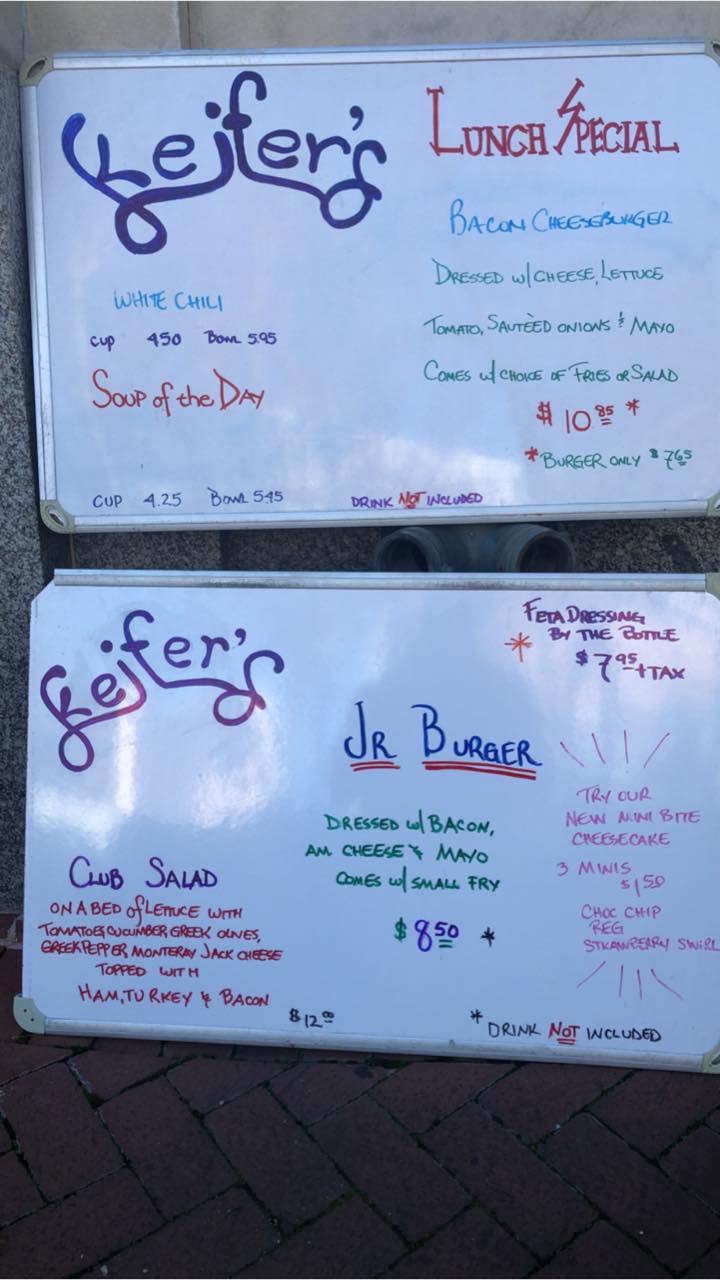 Keifer's
LUNCH SPECIAL
WHITE CHILI
CUP 450 BOWL 5.95
SOUP of the DAY
CUP 4.25 BOWL 545
BACON CHEESEBURGER
DRESSED W/ CHEESE, LETTUCE
TOMATO, SAUTÈED ONIONS & MAYO
COMES W/ CHOICE OF FRIES OR SALAD
$ 10 85 *
* BURGER ONLY $ 765
DRINK NOT INCLUDED
Keifer's
FETA DRESSING
* BY THE BOTTLE
$ 7 95 + TAX
CLUB SALAD
ON A BED of LETTUCE WITH
TOMATOES, CUCUMBER, GREEK OLIVES,
GREEK PEPPER, MONTERAY JACK CHEESE
TOPPED WITH
HAM, TURKEY & BACON
$12 00
JR BURGER
DRESSED W/ BACON,
AM CHEESE & MAYO
COMES W/ SMALL FRY
$ 8 50 *
TRY OUR
NEW MINI BITE
CHEESECAKE
3 MINIS
$1,50
CHOC CHIP
REG
STRAWBERRY SWIRL
* DRINK NOT INCLUDED